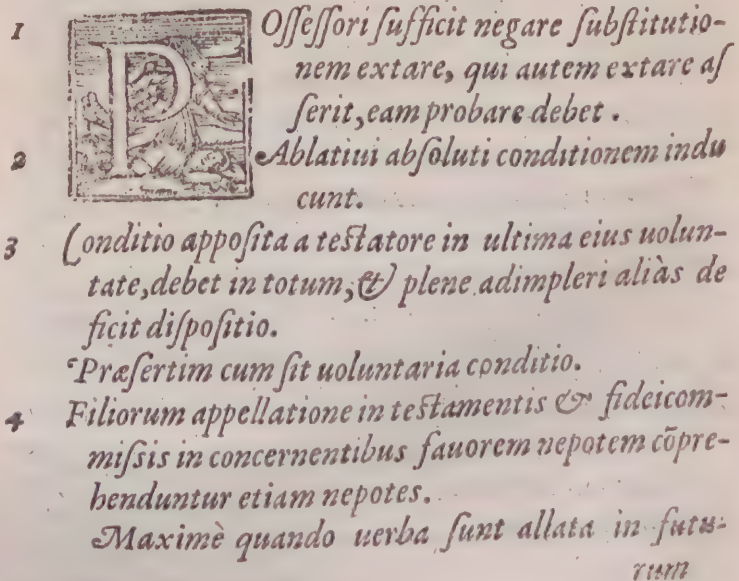 1 POſſeſſori ſufficit negare ſubſtitutio-
nem extare, qui autem extare aſ
ſerit, eam probare debet.
2 Ablatiui abſoluti conditionem indu
cunt.
3 Conditio appoſita a teſtatore in ultima eius uolun-
tate, debet in totum, & plene adimpleri aliàs de
ficit diſpoſitio.
Præſertim cum ſit uoluntaria conditio.
4 Filiorum appellatione in teſtamentis & fideicom-
miſsis in concernentibus fauorem nepotem cōpre-
henduntur etiam nepotes.
Maximè quando uerba ſunt allata in futu-
rum